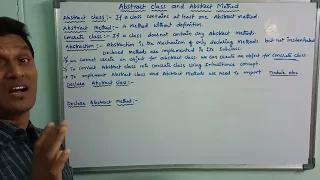 Abstract class and Abstract Method
Abstract class:- If a class contains at least one Abstract method.
Abstract Method:- A Method without definition.
Concrete class:- If a class doesnot contain any Abstract Methods.
Abstraction:- Abstraction is the Mechanism of only declaring Methods but not implemented
Declared Methods are implemented in its Subclass.
we cannot create an object for abstract class. we can create an object for Concrete class
To convert Abstract class into concrete class using Inheritance concept.
To implement Abstract class and Abstract Methods we need to import Module abc
Declare Abstract class:-
Declare Abstract Method:-